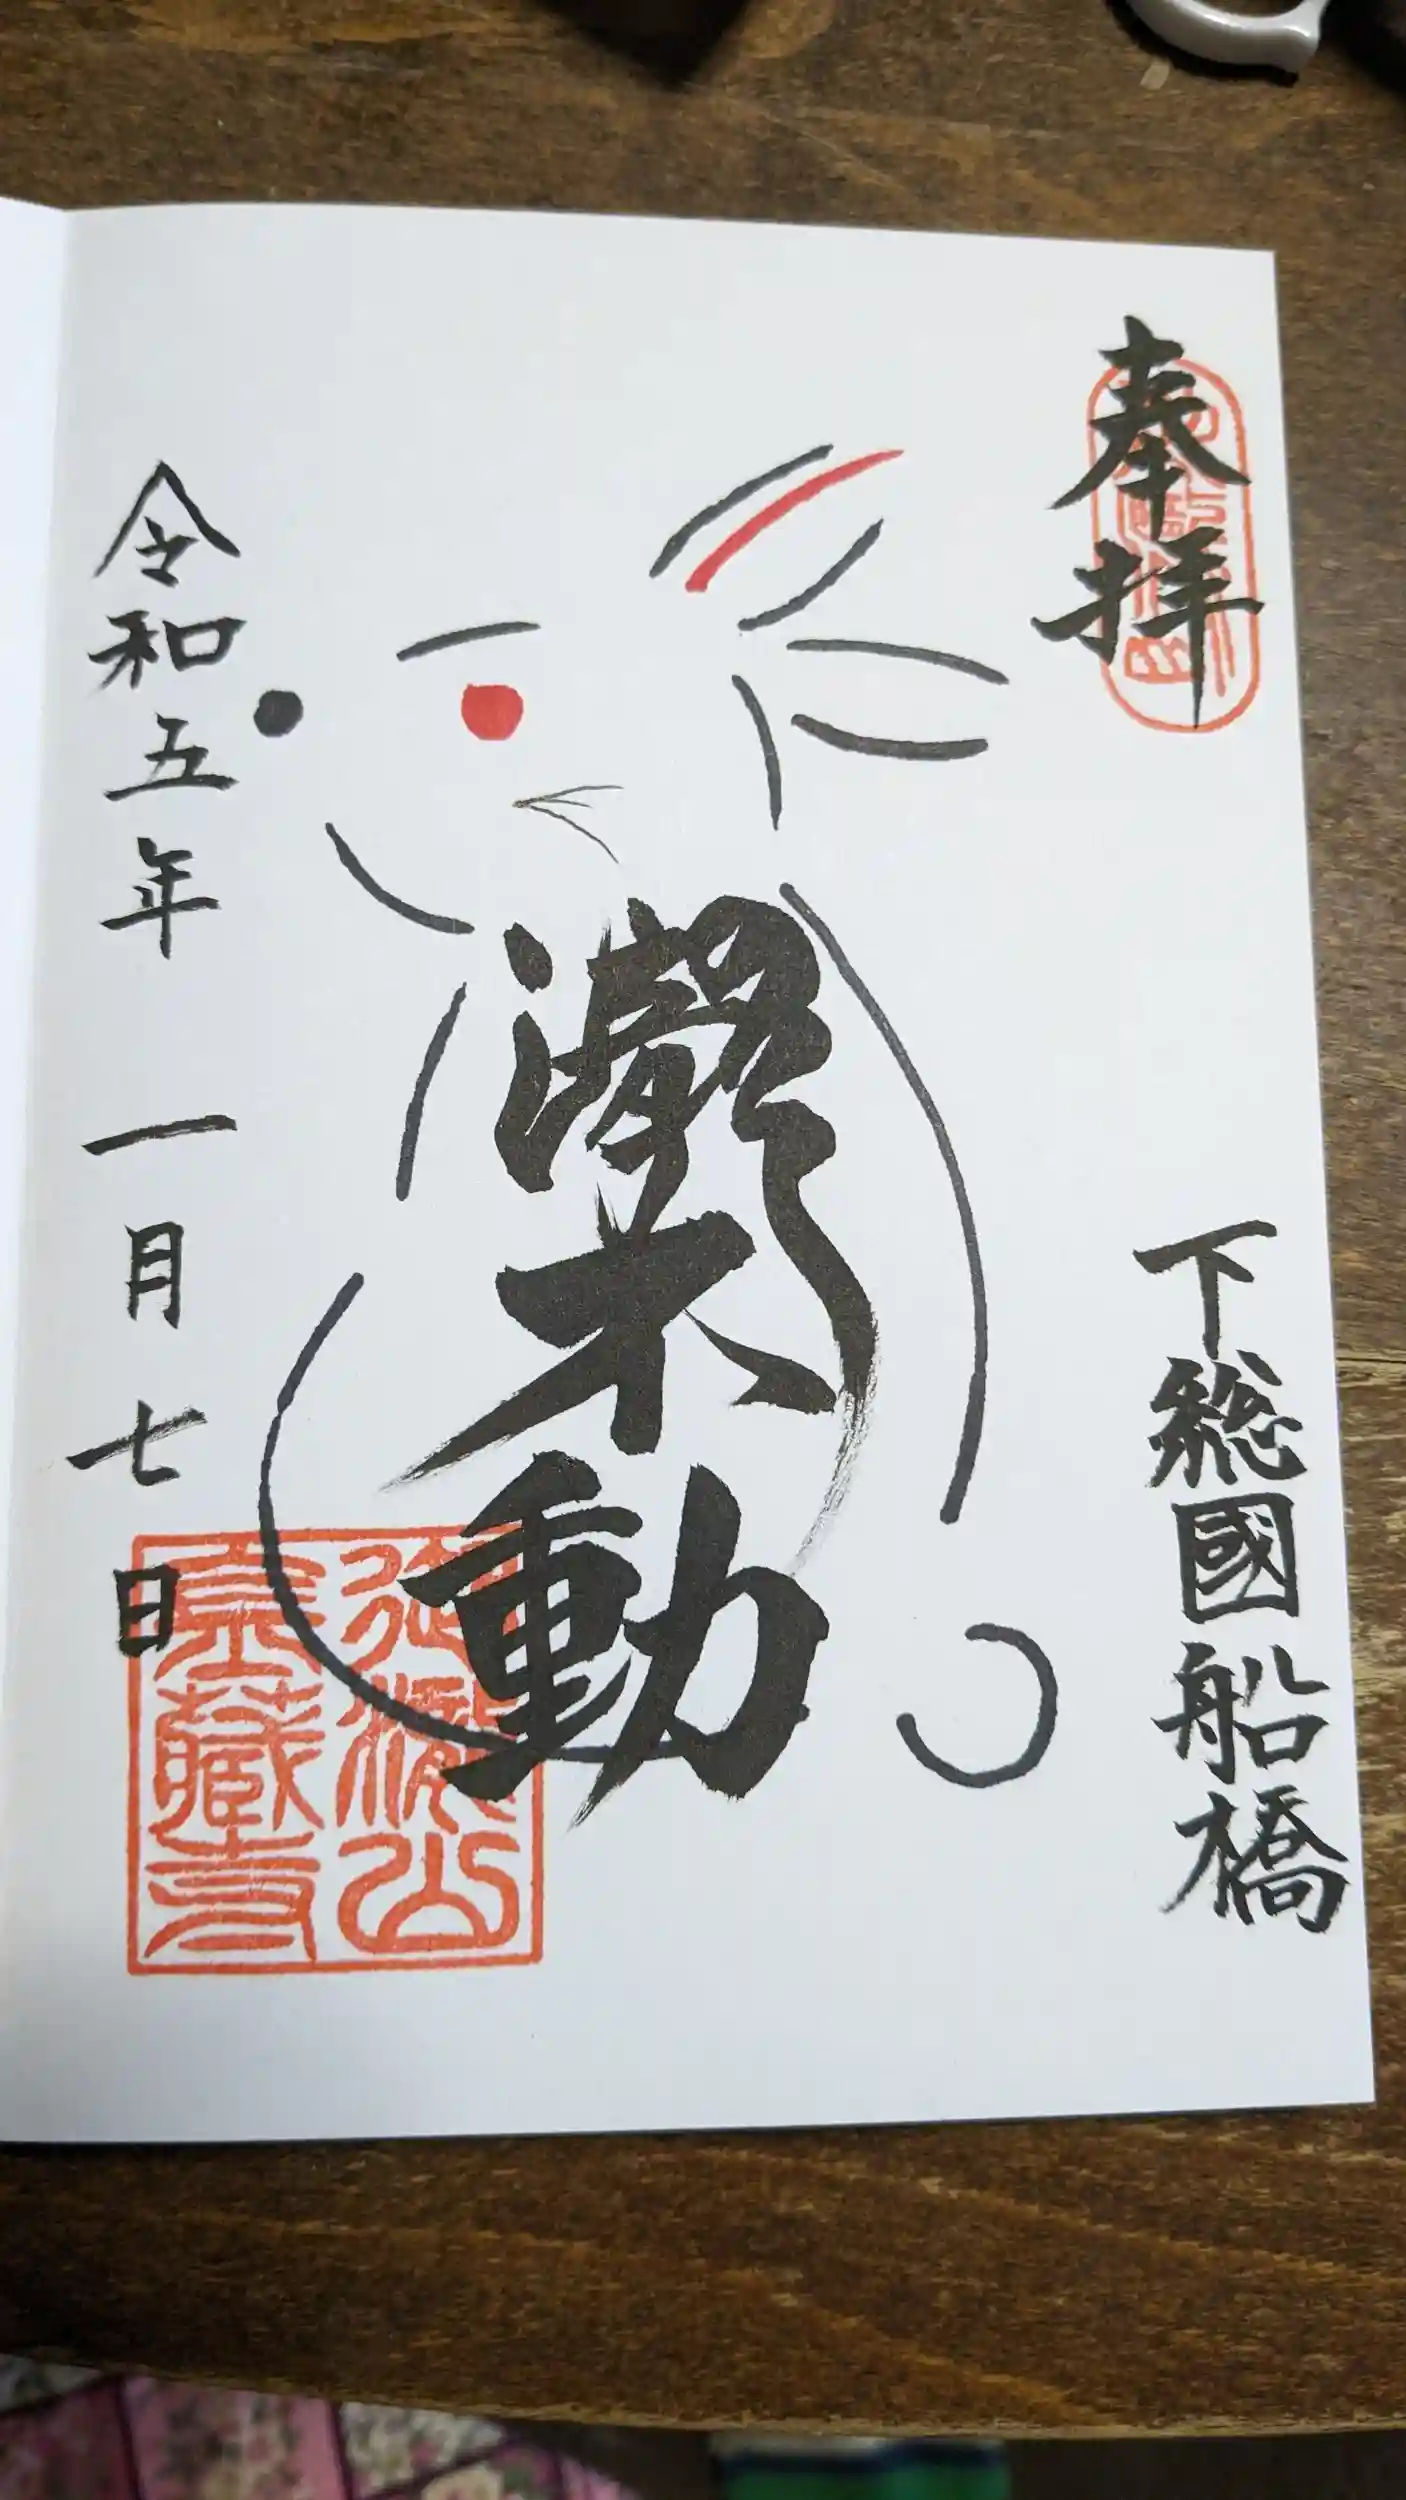 奉拝
下総國船橋
瀧不動
令和五年 一月七日
御瀧山
金蔵寺